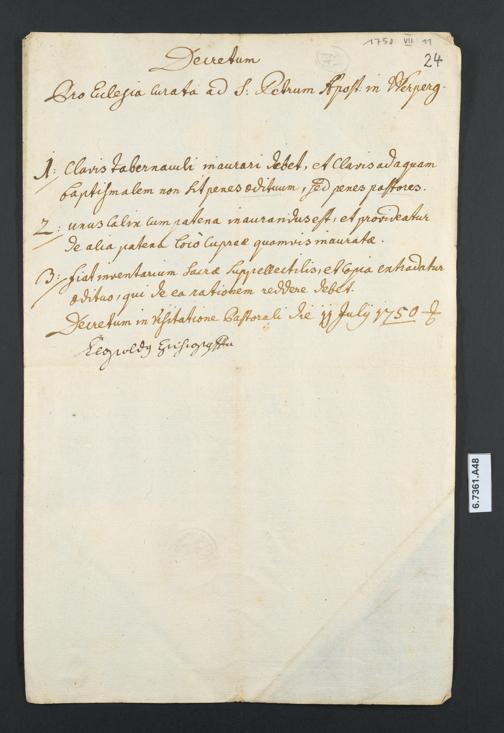 1750 VII 11
24
Decretum
Pro Eclesia Curata ad S: Petrum Apost: in Werperg.
1: Clavis tabernaculi inaurari debet, et Clavis ad aquam
baptismalem non sit penes ædituum, sed penes pastores.
2: unus Calix cum patena inaurandus est, et provideatur
de alia patena loco Cupreæ quamvis inauratæ.
3: fiat inventarium Sacræ Suppellectilis, et Copia extradatur
ædituo, qui de ea rationem reddere debet.
Decretum in Visitatione Pastorali die 11 July 1750
Leopoldus Episcopus
6.7361.A48